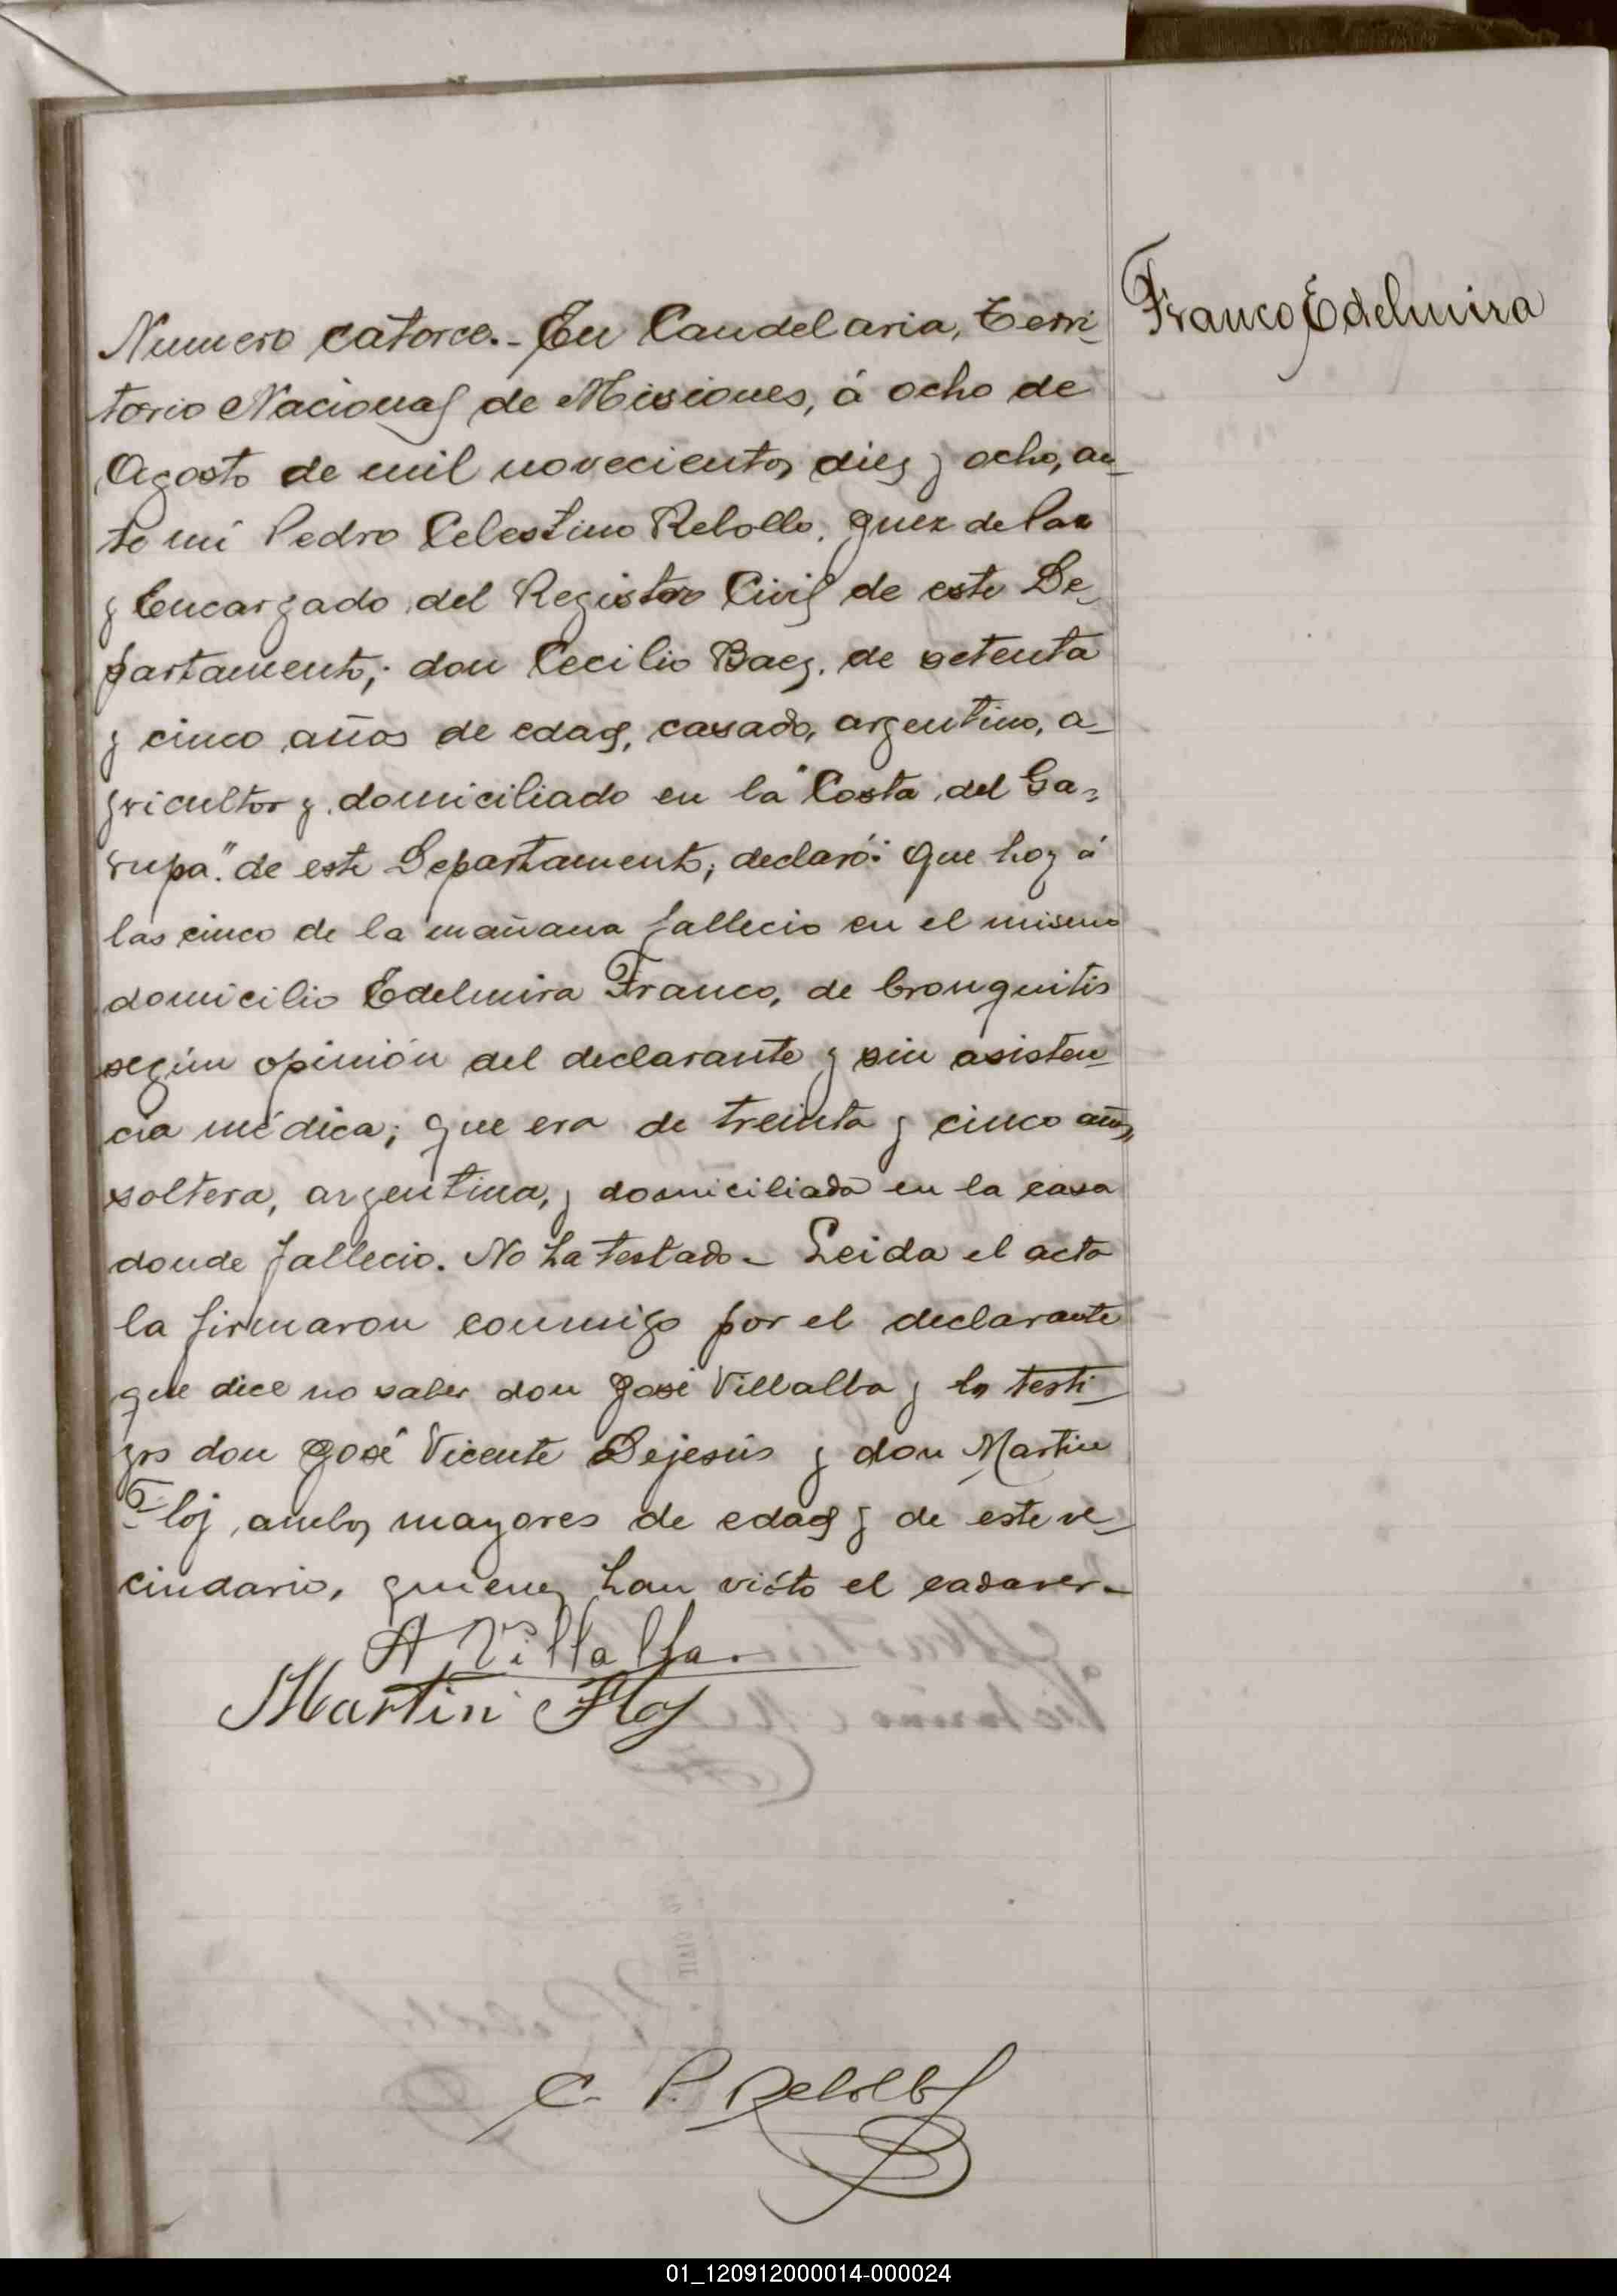 Franco Edelmira
Numero catorce.- En Candelaria, Terri-
torio Nacional de Misiones, á ocho de
Agosto de mil novecientos diez y ocho, an-
te mi Pedro Celestino Rebollo, Juez de Paz
y Encargado del Registro Civil de este De-
partamento; don Cecilio Baez, de setenta
y cinco años de edad, casado, argentino, a-
gricultor y domiciliado en la "Costa del Ga-
rupa" de este Departamento, declaró: Que hoy á
las cinco de la mañana fallecio en el mismo
domicilio Edelmira Franco, de bronquitis
según opinión del declarante y sin asisten-
cia médica; que era de treinta y cinco años,
soltera, argentina, y domiciliada en la casa
donde fallecio. No ha testado - Leida el acta
la firmaron conmigo por el declarante
que dice no saber don José Villalba y los testi-
gos don José Vicente Dejesús y don Martin
Floj, ambos mayores de edad y de este ve-
cindario, quienes han visto el cadaver-
A Villalba.
Martin Floj
C. P. Rebollo
01_120912000014-000024